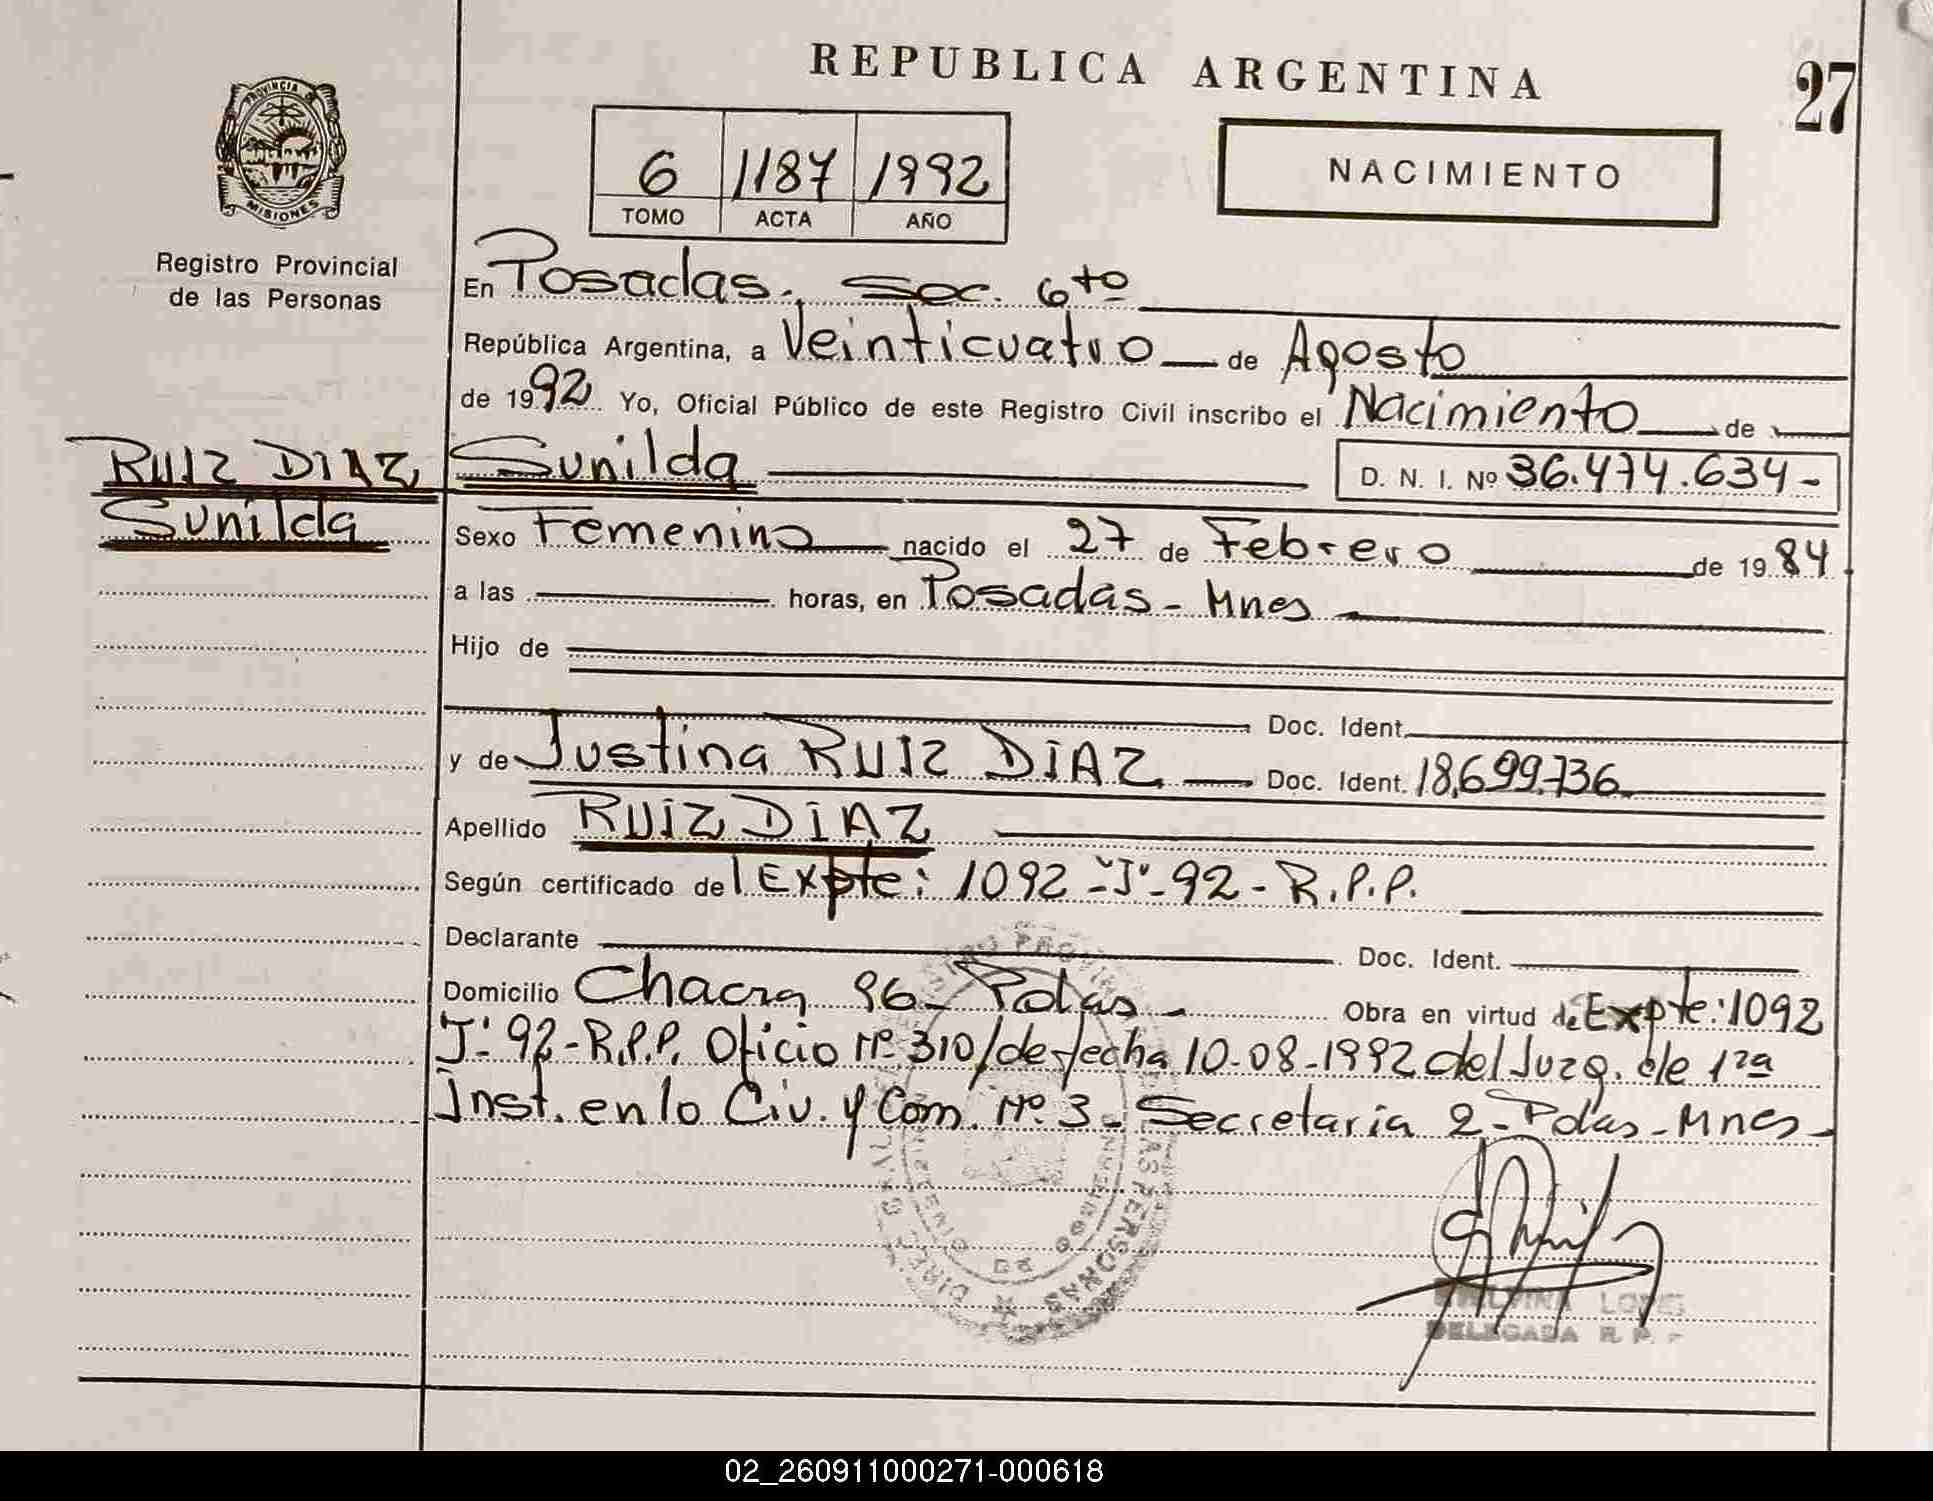 REPUBLICA ARGENTINA
27
PROVINCIA DE
MISIONES
Registro Provincial
de las Personas
6 1187 1992
TOMO ACTA AÑO
NACIMIENTO
En Posadas, Sec. 6to
República Argentina, a Veinticuatro de Agosto
de 1992 Yo, Oficial Público de este Registro Civil inscribo el Nacimiento de
RUIZ DIAZ
Sunilda
Sunilda
D. N. I. Nº 36.474.634-
Sexo Femenino nacido el 27 de Febrero de 1984
a las horas, en Posadas - Mnes
Hijo de
Doc. Ident.
y de Justina RUIZ DIAZ Doc. Ident. 18.699.736
Apellido RUIZ DIAZ
Según certificado del Expte: 1092 -"J"- 92 - R.P.P.
Declarante Doc. Ident.
Domicilio Chacra 96 - Pdas - Obra en virtud de Expte: 1092
"J" 92 - R.P.P. Oficio Nº 310/de fecha 10-08-1992 del Juzg. de 1ra
Inst. en lo Civ. y Com. Nº 3 - Secretaria 2 - Pdas - Mnes -
LOPEZ
DELEGADA R. P.
02_260911000271-000618